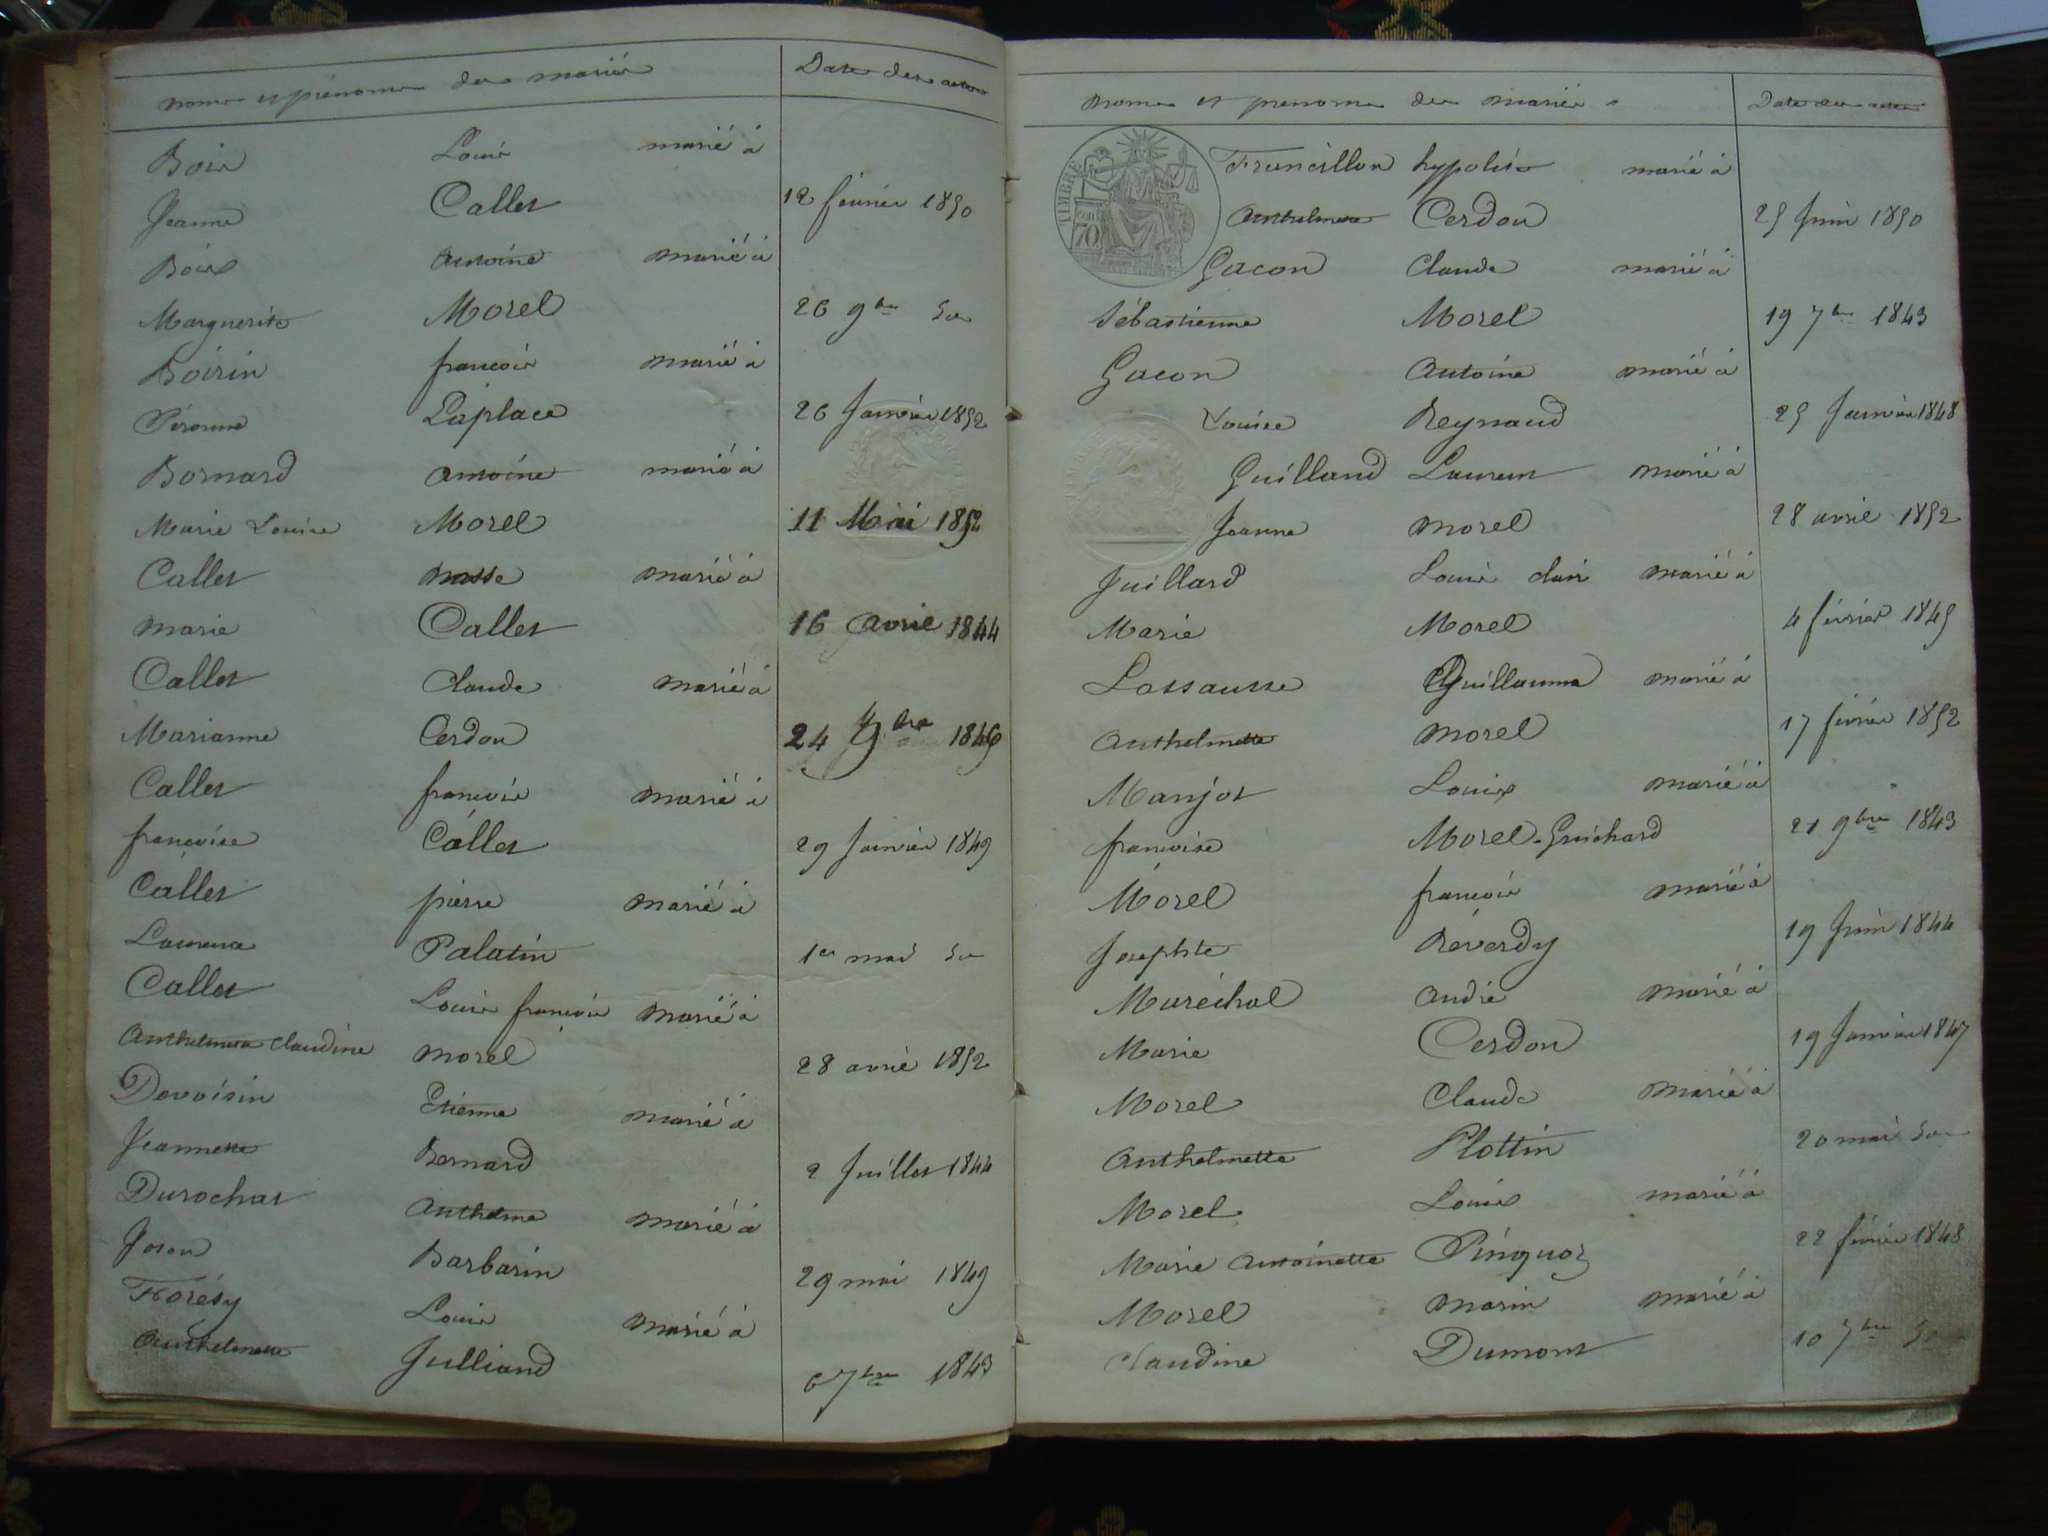 noms et prénoms des mariés
Date des actes
Bois Louis marié à
Jeanne Callet 12 février 1850
Bois Antoine marié à
Marguerite Morel 26 9bre do
Boirin françois marié à
Péronne Laplace 26 Janvier 1852
Bornard Antoine marié à
Marie Louise Morel 11 Mai 1852
Callet marié à
marie Callet 16 avril 1844
Callet Claude marié à
Marianne Cerdon 24 9bre 1846
Callet françois marié à
françoise Callet 29 Janvier 1849
Callet pierre marié à
Laurence Palatin 1er mai do
Callet Louis françois marié à
Anthelmette Claudine morel 28 avril 1852
Devoisin Etienne marié à
Jeannette Bernard 2 Juillet 1844
Durochat Anthelme marié à
Barbarin 29 mai 1849
Florésy Louis marié à
Anthelmette Julliand 6 7bre 1843
noms et prénoms des mariés
Date des actes
TIMBRE
70
Francillon hypolite marié à
Anthelmette Cerdon 25 Juin 1850
Gacon Claude marié à
Sébastienne Morel 19 7bre 1843
Gacon Antoine marié à
Louise Reynaud 25 Janvier 1848
Guilland Laurent marié à
Jeanne morel 28 avril 1852
Juillard Louis clair marié à
Marie Morel 4 février 1845
Lassausse Guillaume marié à
Anthelmette morel 17 février 1852
Manjot Louis marié à
françoise Morel-Guichard 21 9bre 1843
Morel françois marié à
Josephte Reverdy 19 Juin 1844
Maréchal André marié à
Marie Cerdon 19 Janvier 1847
Morel Claude marié à
Anthelmette Plottin 20 mai do
Morel Louis marié à
Marie Antoinette Pinquoz 22 février 1848
Morel marin marié à
Claudine Dumont 10 7bre do